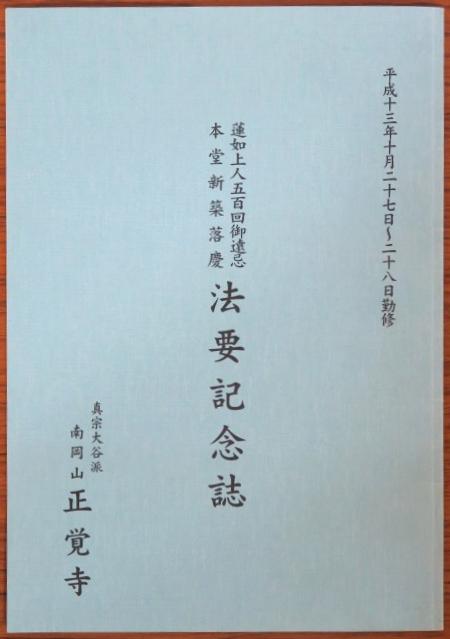 平成十三年十月二十七日～二十八日勤修
蓮如上人五百回御遠忌
本堂新築落慶
法要記念誌
真宗大谷派
南岡山 正覚寺